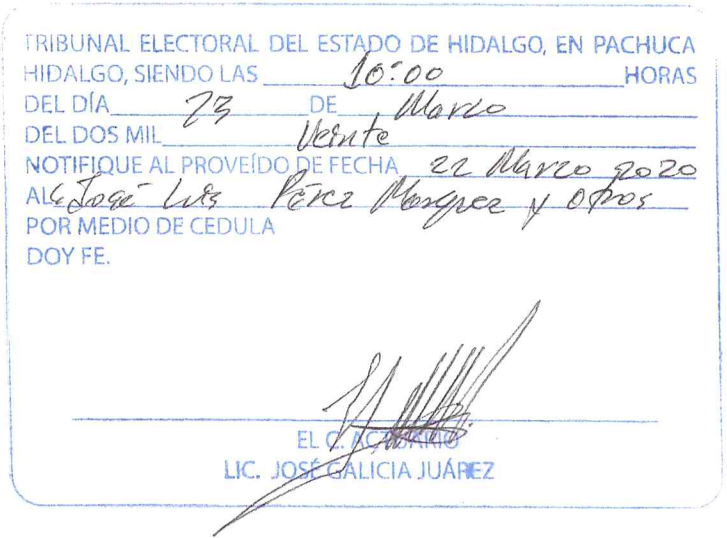 TRIBUNAL ELECTORAL DEL ESTADO DE HIDALGO, EN PACHUCA
HIDALGO, SIENDO LAS 10:00 HORAS
DEL DÍA 23 DE Marzo
DEL DOS MIL Veinte
NOTIFIQUE AL PROVEÍDO DE FECHA 22 Marzo 2020
AL C José Luis Pérez Marquez y otros
POR MEDIO DE CEDULA
DOY FE.
EL C. ACTUARIO
LIC. JOSÉ GALICIA JUÁREZ